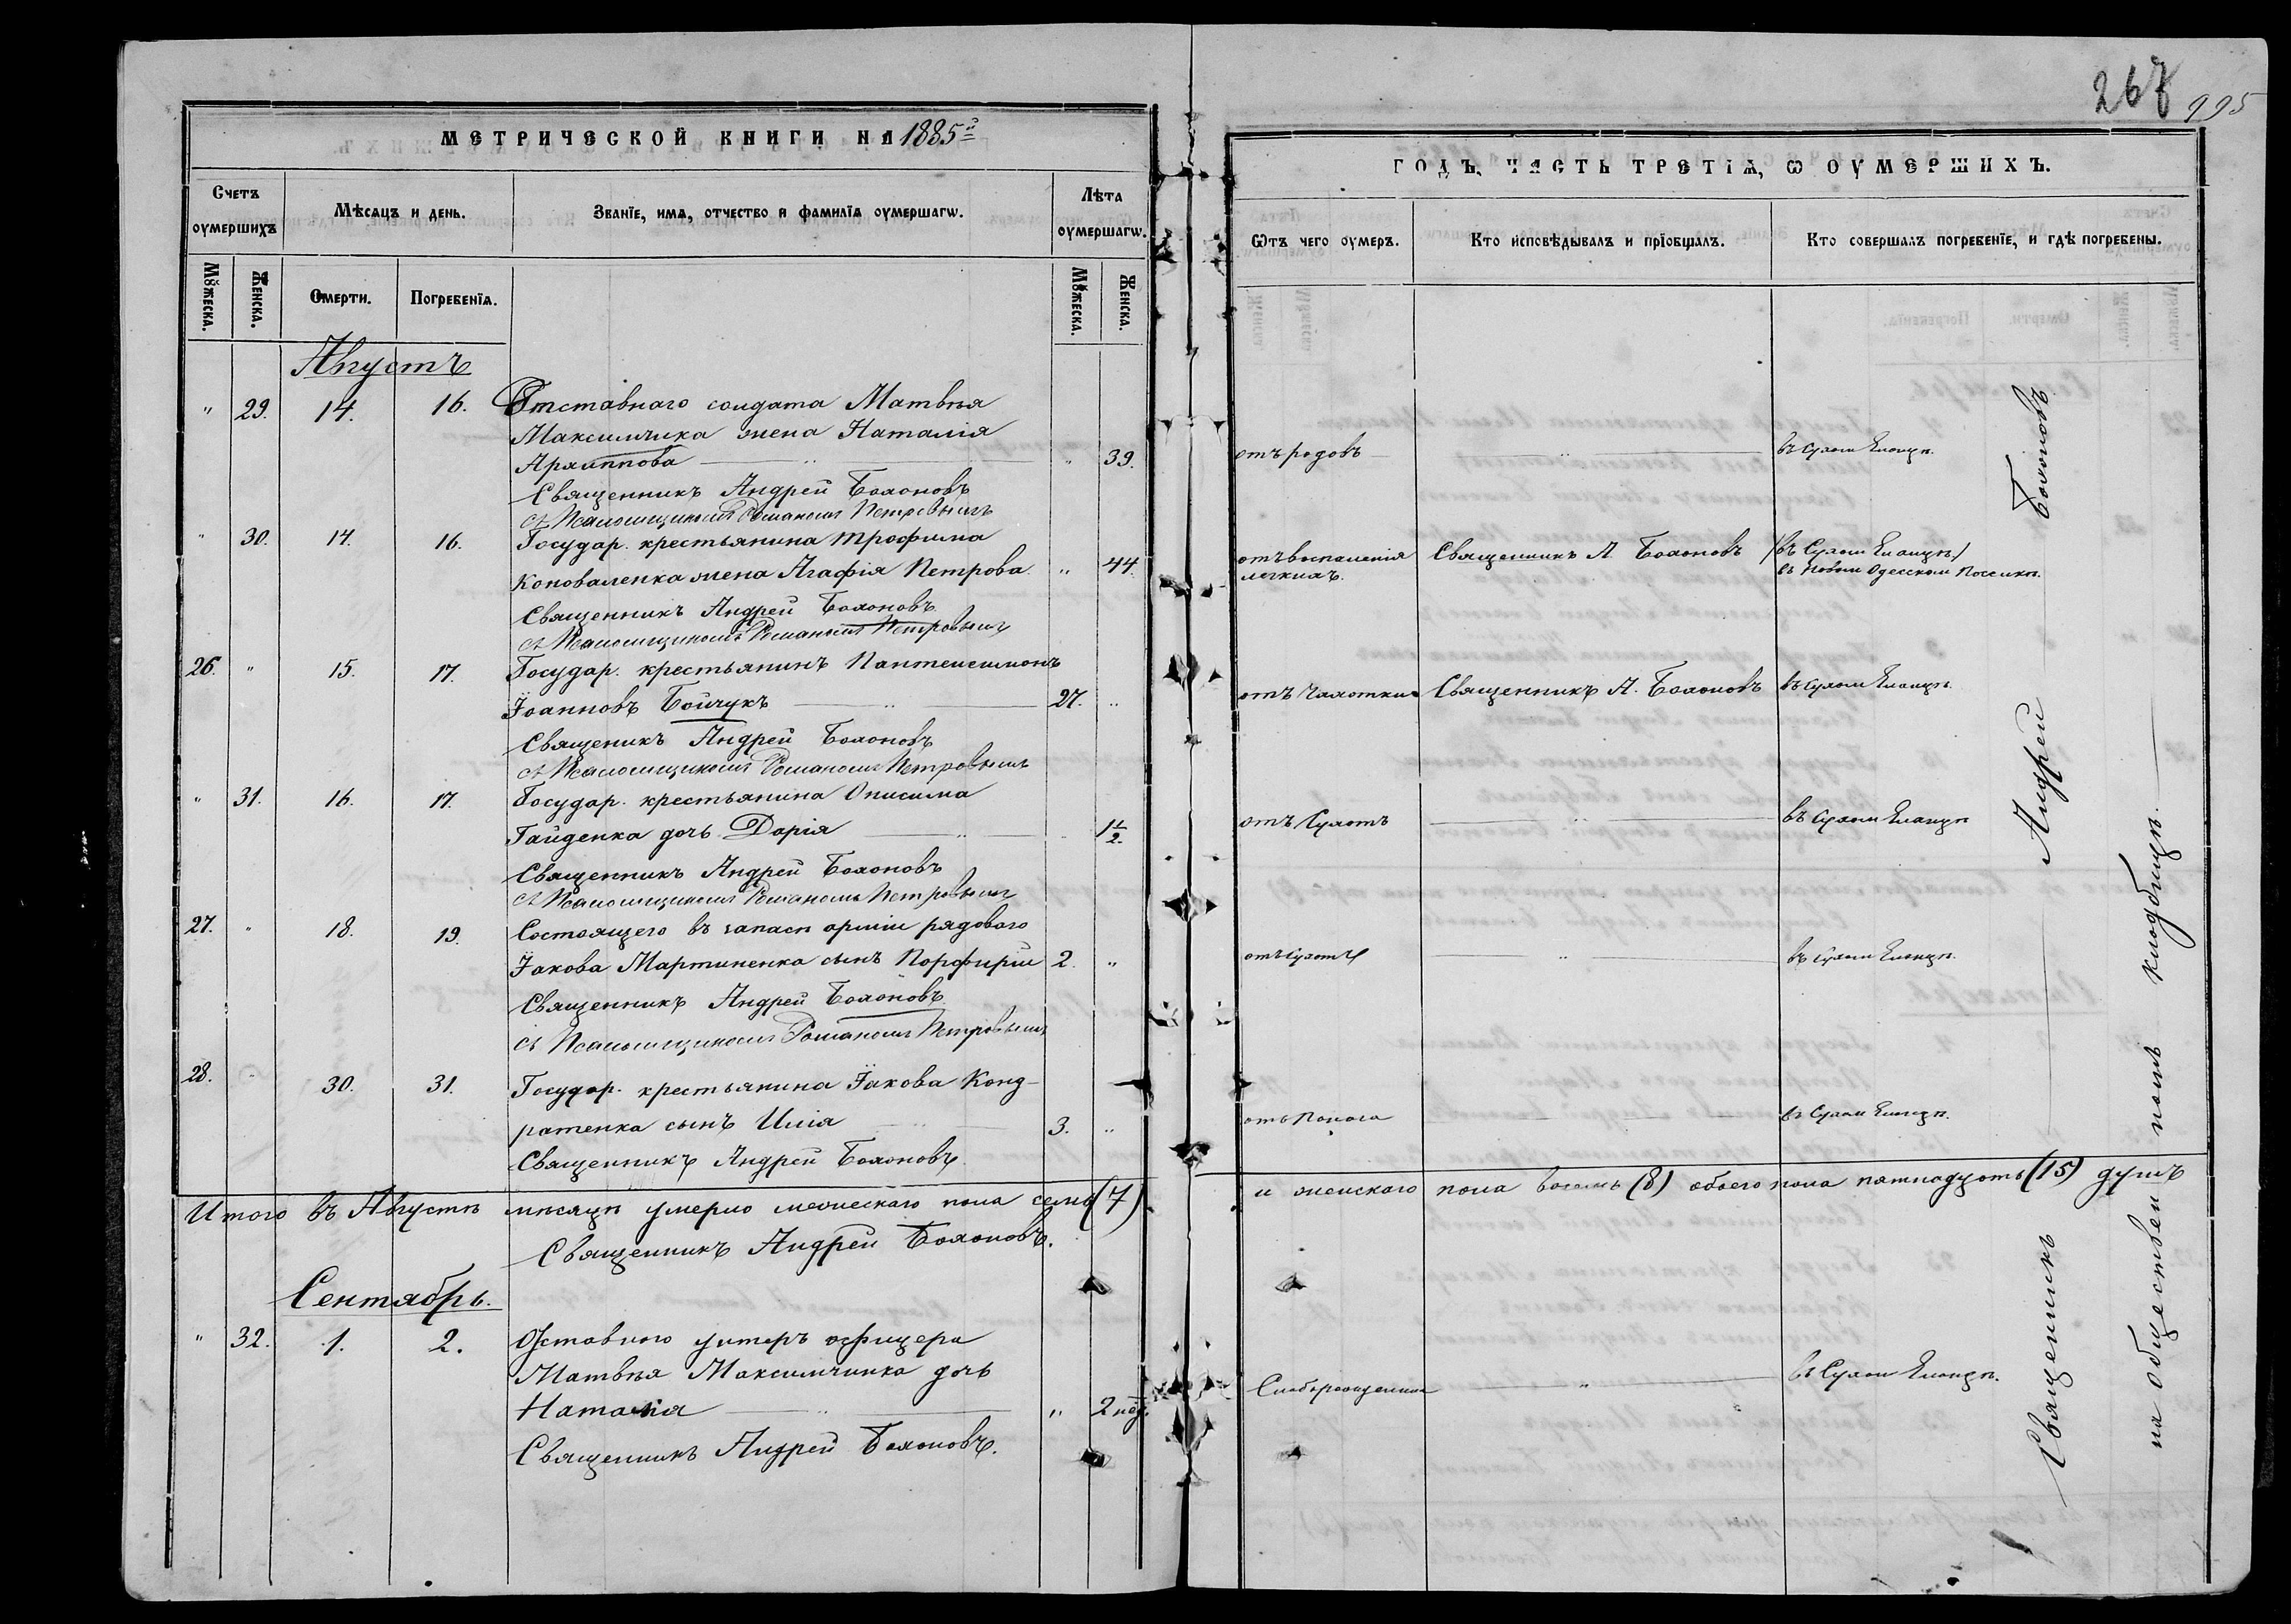 267
995
МЕТРИЧЕСКОЙ КНИГИ НА 1885й
ГОДЪ, ЧАСТЬ ТРЕТІѦ, Ѡ ОУМЕРШИХЪ.
Счетъ оумершихъ
Мѣсяцъ и день.
Званїе, имѧ, отчество и фамилїѧ оумершагѡ.
Лѣта оумершагѡ.
Ѿтъ чего оумеръ.
Кто исповѣдывалъ и прїобщалъ.
Кто совершалъ погребенїе, и гдѣ погребены.
Мꙋжеска.
Женска.
Смерти.
Погребенїѧ.
Мꙋжеска.
Женска.
Августъ
" 29. 14. 16. Отставнаго солдата Матвѣя
Максимчика жена Наталія
Архиппова " 39. отъ родовъ " въ Сухом Еланцѣ.
Священникъ Андрей Бохоновъ
съ Псаломщикомъ Романомъ Петровымъ
" 30. 14. 16. Государ. крестьянина Трофима
Коноваленка жена Агафія Петрова " 44. отъ воспаленія легкихъ. Священникъ А. Бохоновъ /въ Сухом Еланцѣ/
въ Новом Одесском Поселкѣ.
Священникъ Андрей Бохоновъ
съ Псаломщикомъ Романомъ Петровымъ
26. " 15. 17. Государ. крестьянинъ Пантелеимонъ
Іоанновъ Бойчукъ 27. " отъ Чахотки Священникъ А. Бохоновъ въ Сухом Еланцѣ.
Священикъ Андрей Бохоновъ
съ Псаломщикомъ Романомъ Петровымъ
" 31. 16. 17. Государ. крестьянина Онисима
Гайденка дочь Дарія " 1 1/2. отъ Сухотъ " въ Сухом Еланцѣ
Священникъ Андрей Бохоновъ
съ Псаломщикомъ Романомъ Петровымъ
27. " 18. 19. Состоящего въ запасѣ арміи рядового
Іакова Мартиненка сынъ Порфирій 2. " отъ Сухотъ " въ Сухом Еланцѣ.
Священникъ Андрей Бохоновъ
съ Псаломщикомъ Романомъ Петровымъ
28. " 30. 31. Государ. крестьянина Іакова Конд-
ратенка сынъ Илія 3. " отъ Поноса въ Сухом Еланцѣ.
Священникъ Андрей Бохоновъ
Итого въ Августѣ мѣсяцѣ умерло мужескаго пола семь (7) и женскаго пола восемь (8) обоего пола пятнадцать (15) душъ
Священникъ Андрей Бохоновъ.
Сентябрь.
" 32. 1. 2. Отставного унтеръ офицера
Матвѣя Максимчика дочь
Наталія " 2 нед. " въ Сухом Еланцѣ.
Священникъ Андрей Бохоновъ.
Священникъ Андрей Бохоновъ
на общественномъ кладбищѣ.